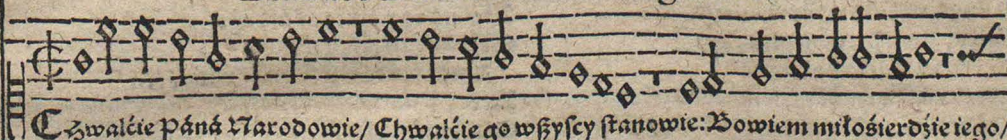 Chwalćie Páná Narodowie/ Chwalćie go wßyſcy ſtanowie: Bowiem miłośierdźie iego